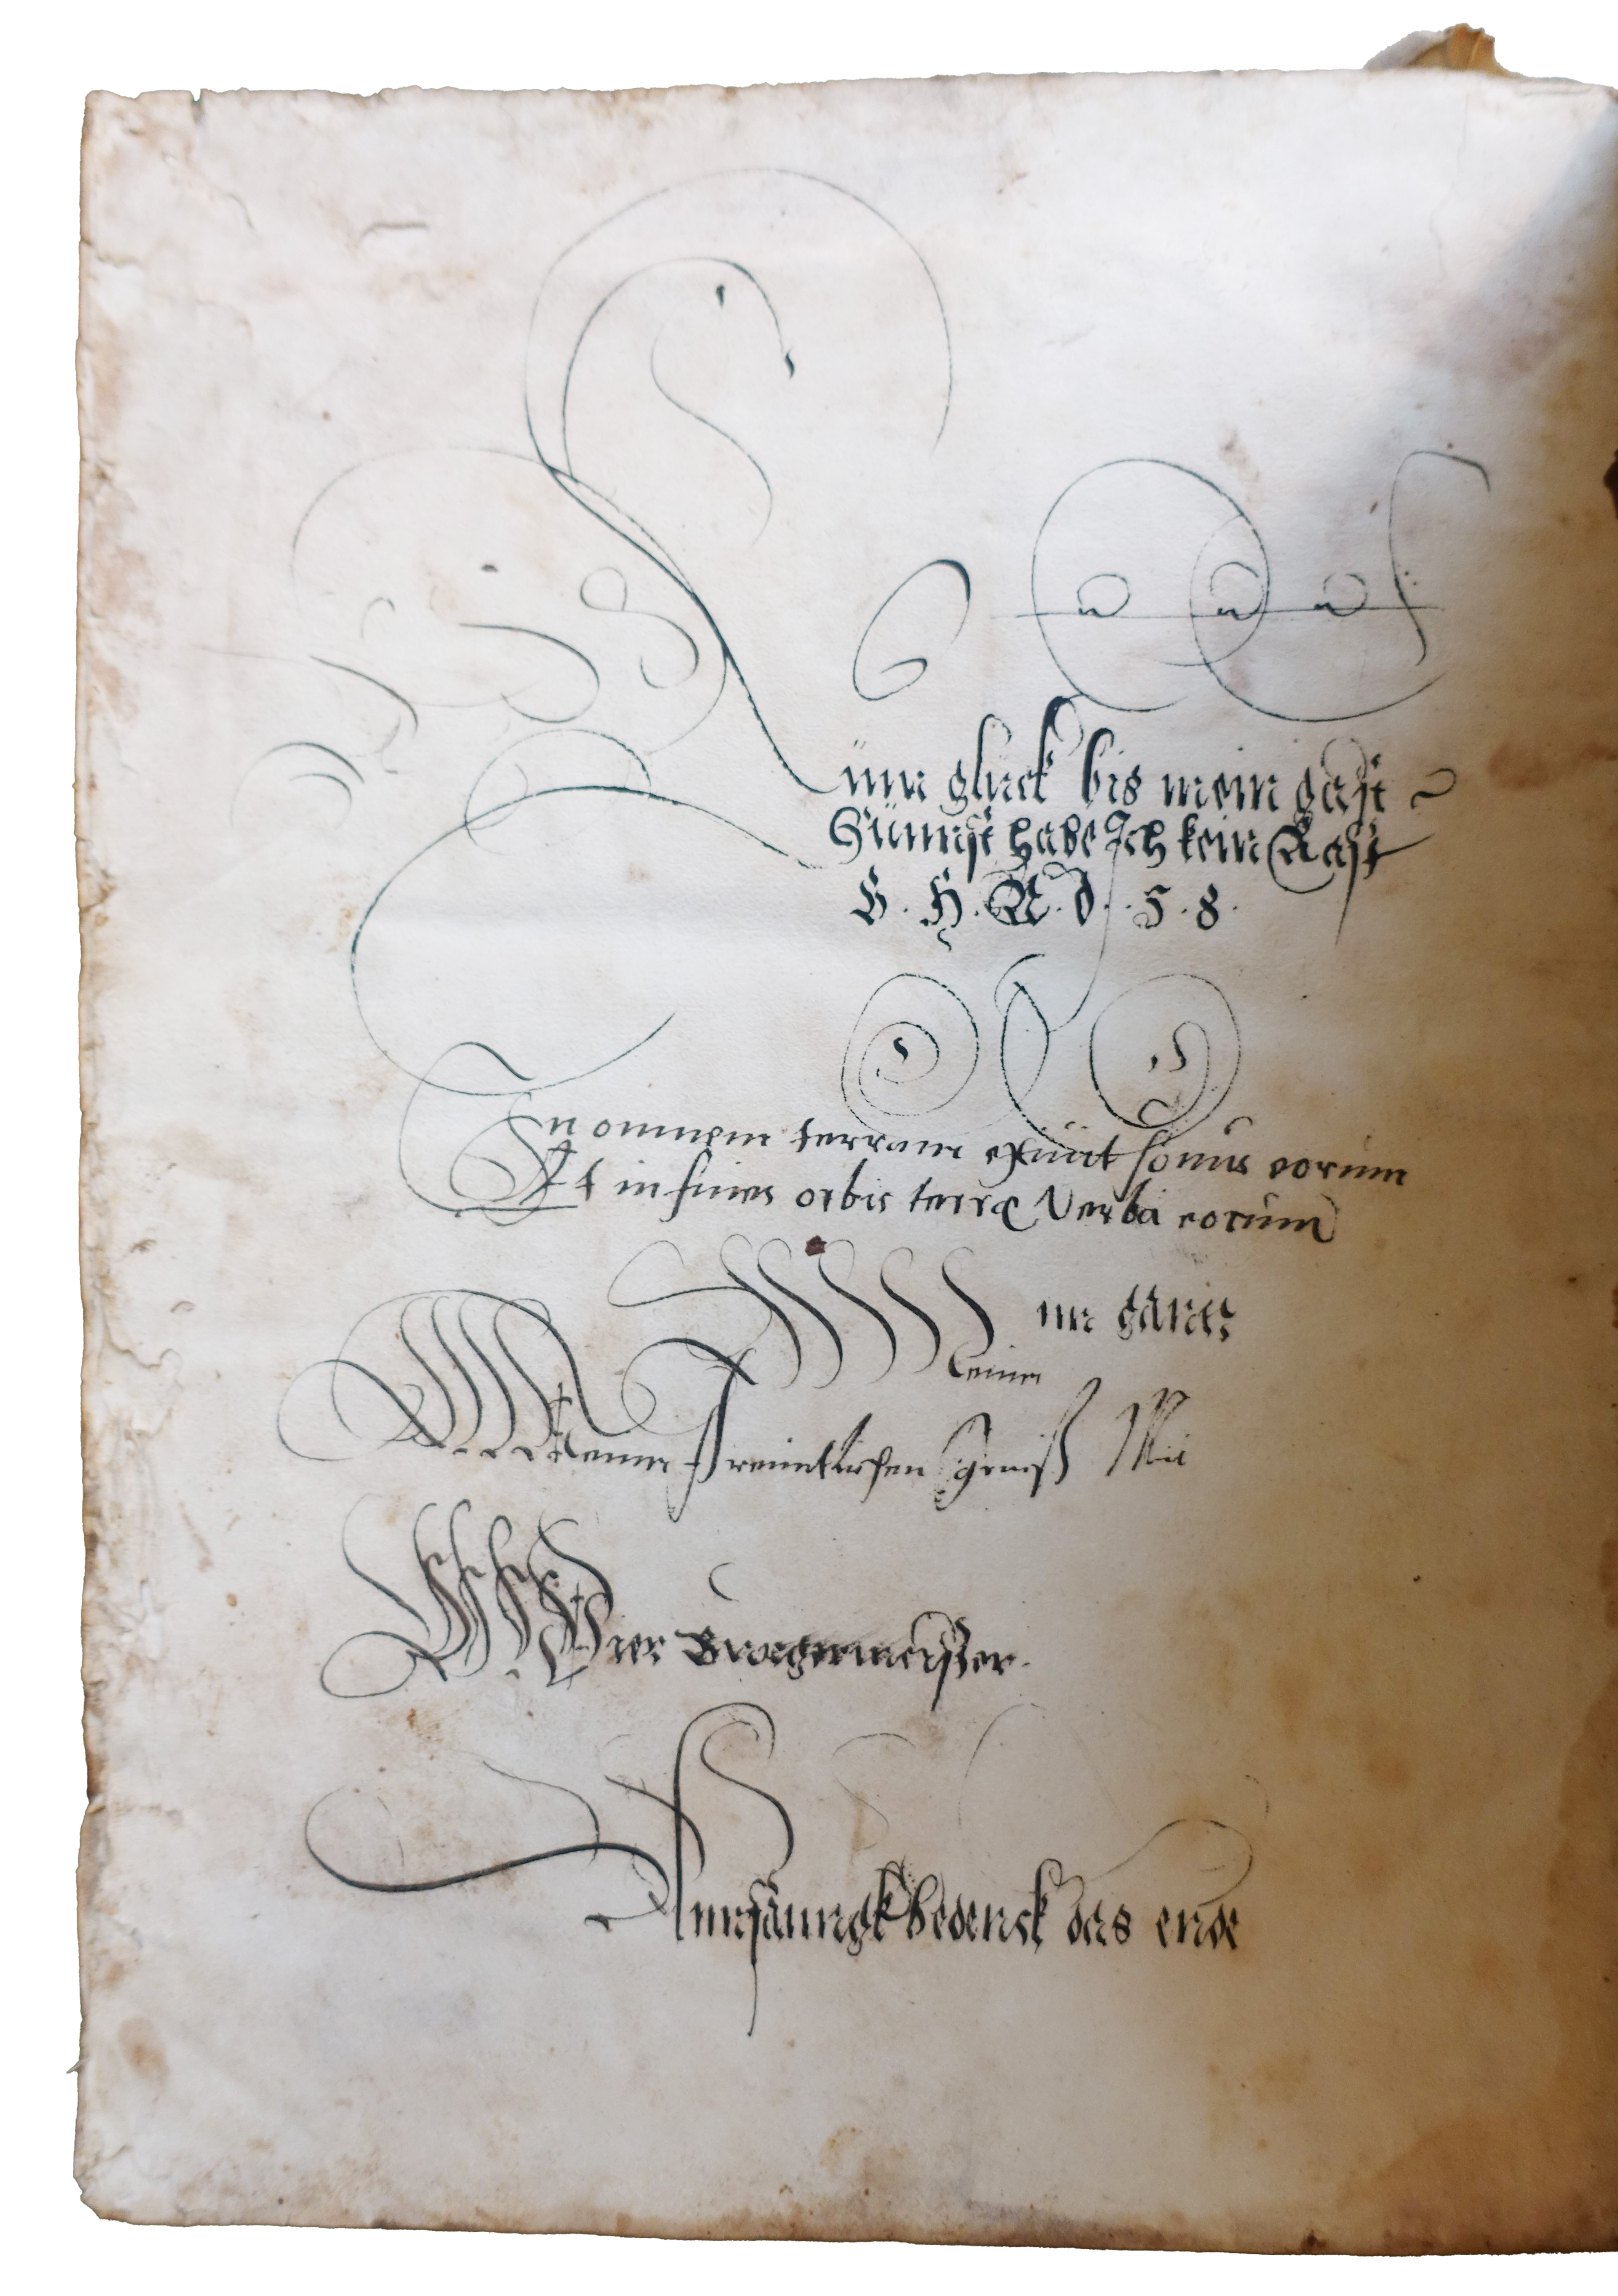 Kum gluck bis mein gast
Sünnst habe Ich kein Rast
G. H. R. d. 5. 8.
In omnem terram exiuit sonus eorum
Et in fines orbis terræ Verba eorum
im gantz
Meinen freuntlichen Grueß Mit
Wier Buergermeister.
Annfanngk bedenck das ende